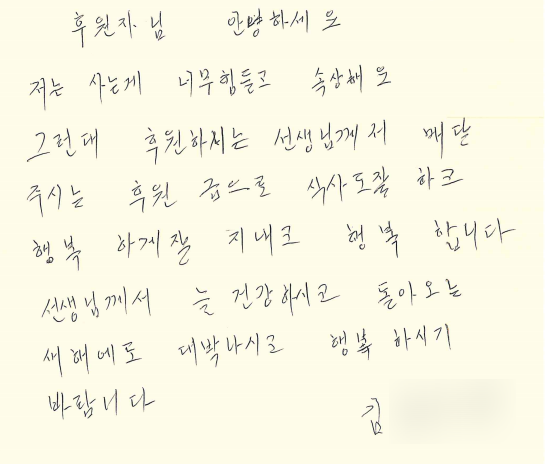 후원자님 안녕하세요
저는 사는게 너무힘들고 속상해요
그런대 후원하시는 선생님께서 매달
주시는 후원금으로 식사도잘 하고
행복하게잘 지내고 행복 합니다
선생님께서 늘 건강하시고 돌아오는
새해에도 대박나시고 행복 하시기
바랍니다 김